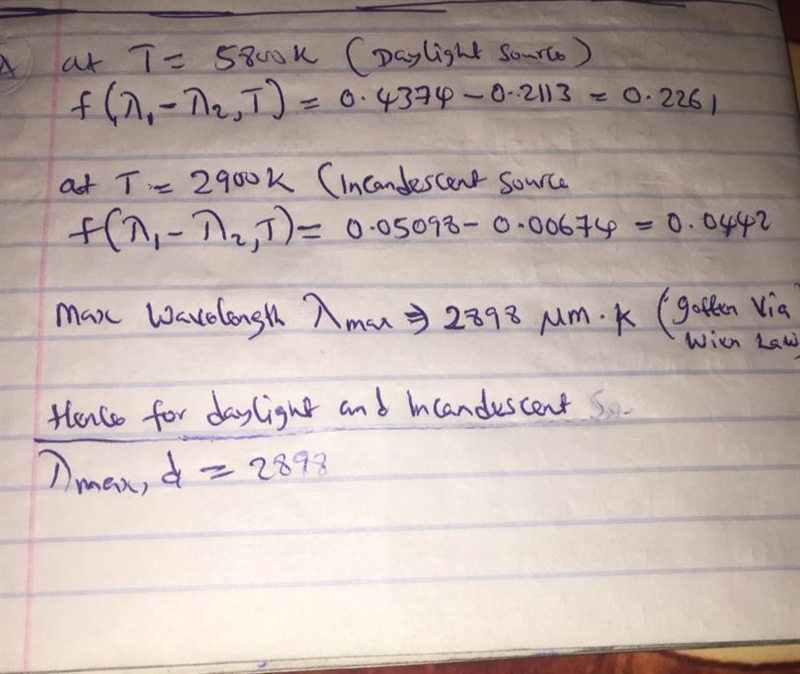 at T = 5800K (Daylight Source)
f(λ₁ - λ₂, T) = 0.4374 - 0.2113 = 0.2261
at T = 2900K (Incandescent Source
f(λ₁ - λ₂, T) = 0.05098 - 0.00674 = 0.0442
Max Wavelength λmax ⇒ 2898 μm·K (gotten Via
Wien Law)
Hence for daylight and Incandescent
λmax, d = 2898